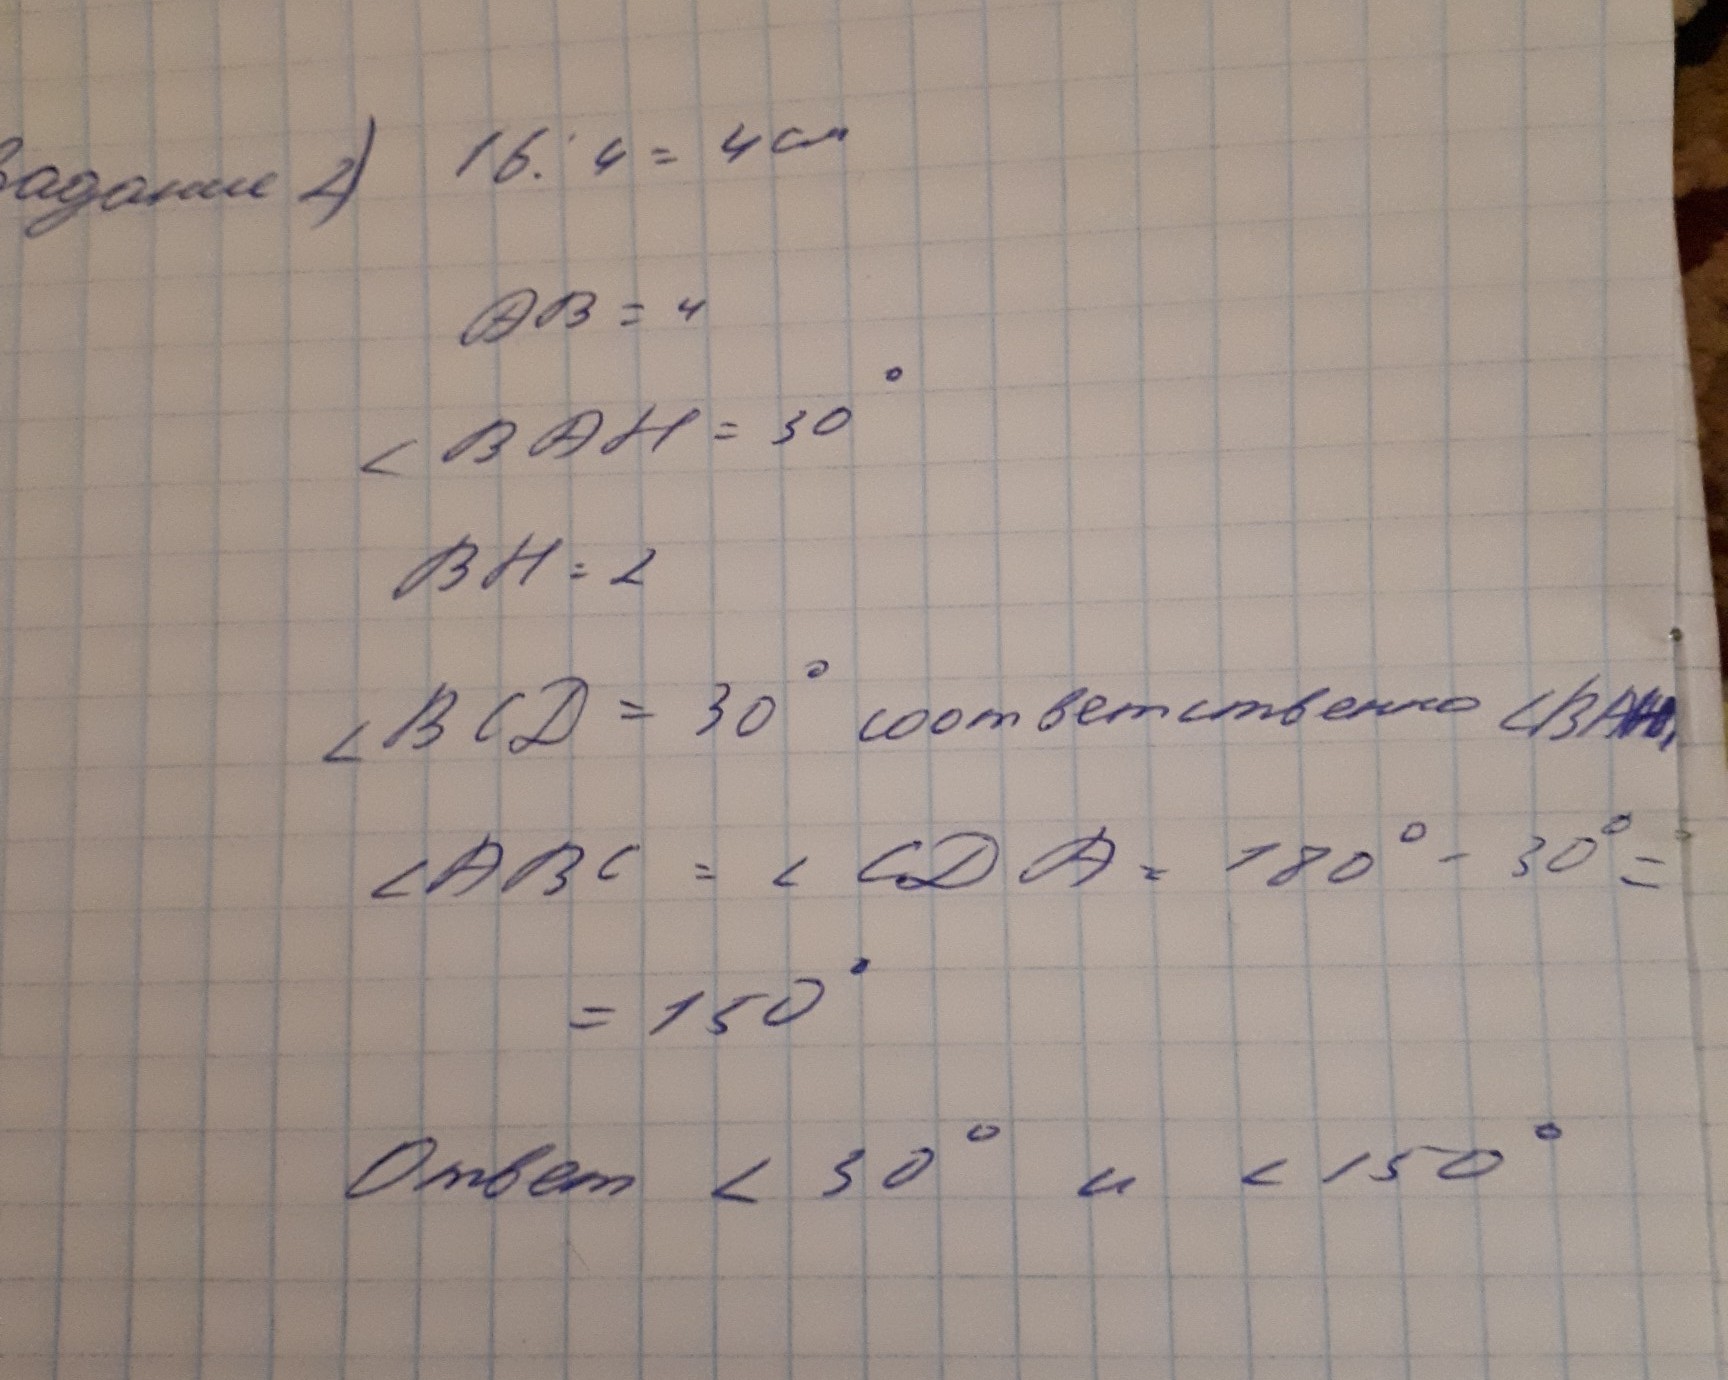 Задание 2) 16 : 4 = 4 см
AB = 4
∠BAH = 30°
BH = 2
∠BCD = 30° соответственно ∠BAH,
∠ABC = ∠CDA = 180° - 30° =
= 150°
Ответ ∠30° и ∠150°